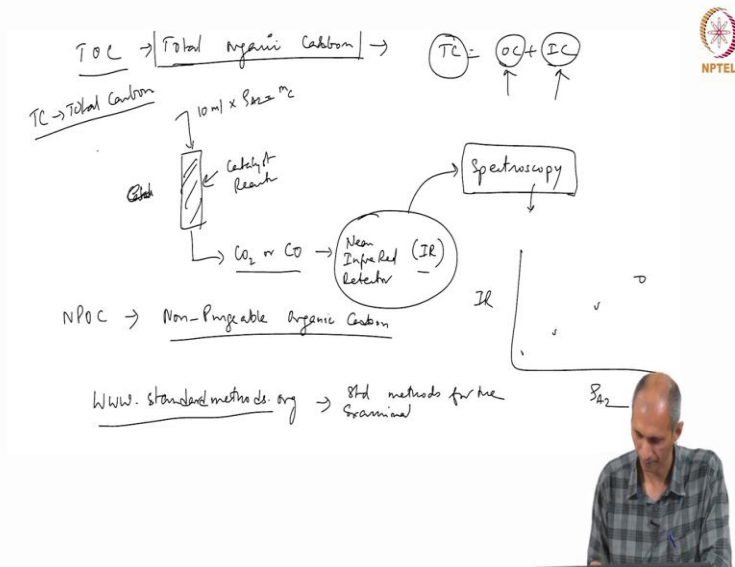 TOC → Total Organic Carbon → TC = OC + IC
TC → Total Carbon
10 ml x ρA2 = mc
Catalyst
React
CO2 or CO → Near
Infra Red (IR)
Detector
Spectroscopy
NPOC → Non-Purgeable Organic Carbon
IR
ρA2
www.standardmethods.org → Std methods for the
Examinat
NPTEL